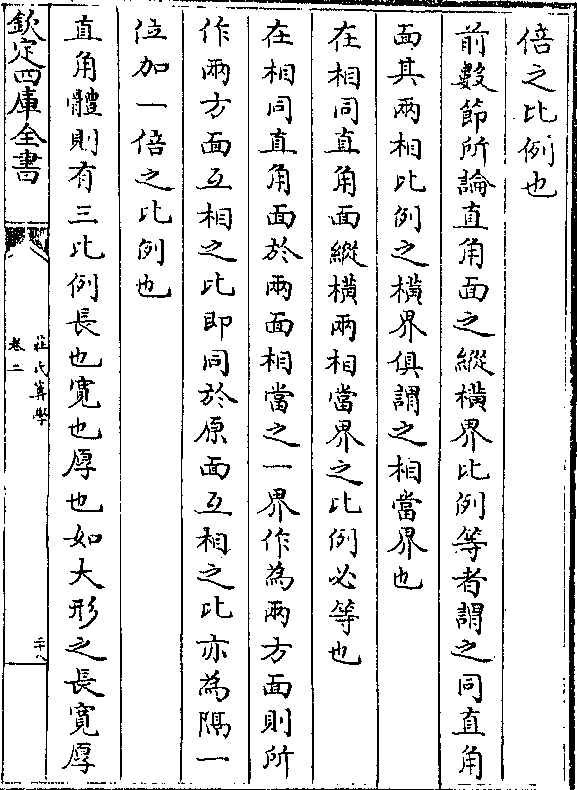 倍之比例也
前數節所論直角面之縱橫界比例等者謂之同直角
面其兩相比例之橫界俱謂之相當界也
在相同直角面縱橫兩相當界之比例必等也
在相同直角面於兩面相當之一界作為兩方面則所
作兩方面互相之比即同於原面互相之比亦為隔一
位加一倍之比例也
直角體則有三比例長也寬也厚也如大形之長寬厚
欽定四庫全書
莊氏算學
卷二
二十八